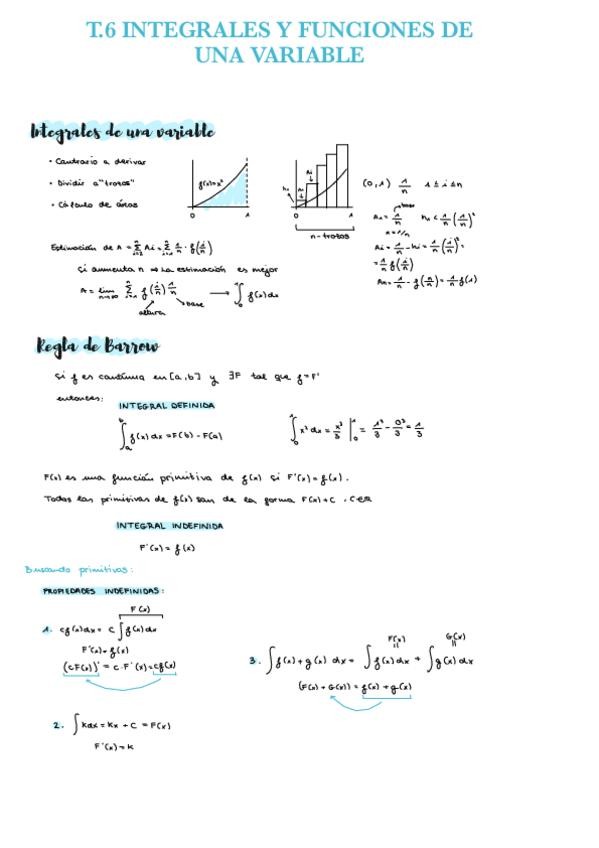 T.6 INTEGRALES Y FUNCIONES DE
UNA VARIABLE
Integrales de una variable
• Contrario a derivar
• Dividir a "trozos"
• Cálculo de áreas
f(x)=x²
0 1
0 1
n-trozos
(0,1) 1/n 1≤i≤n
base
Estimación de A =
Si aumenta n ⇒ La estimación es mejor
A = lim n→∞ Σ f(i/n) 1/n → ∫₀¹ f(x)dx
altura
base
Regla de Barrow
Si f es continua en [a,b] y ∃F tal que f=F'
entonces:
INTEGRAL DEFINIDA
∫ₐᵇ f(x) dx = F(b) - F(a)
∫₀¹ x² dx = x³/3 |₀¹ = 1³/3 - 0³/3 = 1/3
F(x) es una función primitiva de f(x) si F'(x) = f(x).
Todas las primitivas de f(x) son de la forma F(x)+C , C∈R
INTEGRAL INDEFINIDA
F'(x) = f(x)
Buscando primitivas:
PROPIEDADES INDEFINIDAS:
F(x)
1. cf(x)dx = c ∫ f(x)dx
F'(x) = f(x)
(cF(x))' = c·F'(x) = cf(x)
F(x) G(x)
3. ∫ f(x) + g(x) dx = ∫ f(x)dx + ∫ g(x) dx
(F(x) + G(x)) = f(x) + g(x)
2. ∫ kdx = kx + C = F(x)
F'(x) = k